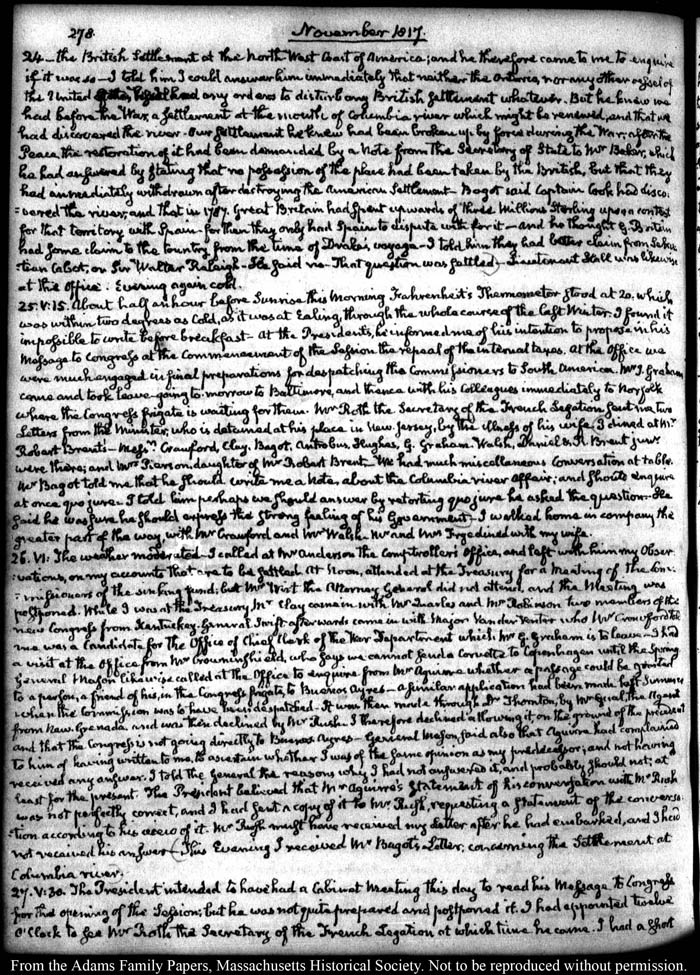 278.
November 1817.
24 — the British Settlement at the North West Coast of America; and he therefore came to me to enquire
if it was so — I told him I could answer him immediately that neither the Ontario, nor any other vessel of
the United States, had any orders to disturb any British Settlement whatever. But he knew we
had before the War, a settlement at the mouth of Columbia river which might be renewed, and that we
had discovered the river. Our settlement he knew had been broken up by force during the War; after the
Peace the restoration of it had been demanded by a Note from the Secretary of State to Mr Baker, which
he had answered by stating that no possession of the place had been taken by the British, but that they
had immediately withdrawn after destroying the American Settlement — Bagot said Captain Cook had disco-
-vered the river, and that in 1787. Great Britain had spent upwards of three Millions Sterling upon a contest
for that territory with Spain — for then they only had Spain to dispute with for it — and he thought G. Britain
had some claim to the Country from the time of Drake's voyage — I told him they had better claim from Sebas-
tian Cabot, or Sir Walter Raleigh — He said no — That question was settled — Lieutenant Hall was likewise
at the Office. Evening again cold.
25. V:15. About half an hour before Sunrise this Morning Fahrenheit's Thermometer stood at 20. which
was within two degrees as cold, as it was at Ealing, through the whole course of the last Winter. I found it
impossible to write before breakfast — At the Presidents, he informed me of his intention to propose in his
Message to Congress at the Commencement of the Session the repeal of the internal taxes. At the Office we
were much engaged in final preparations for despatching the Commissioners to South America. Mr J. Graham
came and took leave — going to-morrow to Baltimore, and thence with his Colleagues immediately to Norfolk
where the Congress frigate is waiting for them. Mr Roth the Secretary of the French Legation sent me two
Letters from the Minister, who is detained at his place in New Jersey, by the illness of his wife. I dined at Mr
Robert Brent's — Messrs Crawford, Clay, Bagot, Antrobus, Hughes, G. Graham, Walsh, Daniel & R. Brent junr
were there; and Mrs Pearson, daughter of Mr Robert Brent — We had much miscellaneous Conversation at table.
Mr Bagot told me that he should write me a Note, about the Columbia river affair; and should enquire
at once quo jure. I told him perhaps we should answer by retorting quo jure he asked the question — He
said he was sure he should express the strong feeling of his Government — I walked home in company the
greater part of the way, with Mr Crawford and Mr Walsh. Mr and Mrs Frye dined with my wife.
26. VI. The weather moderated — I called at Mr Anderson the Comptroller's Office, and left with him my Obser-
-vations, on my accounts that are to be settled. At Noon, attended at the Treasury for a Meeting of the Com-
-missioners of the sinking fund; but Mr Wirt the Attorney General did not attend, and the Meeting was
postponed. While I was at the Treasury Mr Clay came in with Mr Quarles and Mr Robinson two members of the
new Congress from Kentucky. General Swift afterwards came in with Major Vandeventer who Mr Crawford told
me was a Candidate for the Office of Chief Clerk of the War Department which Mr G. Graham is to leave — I had
a visit at the Office from Mr Crowninshield, who says we cannot send a Corvette to Copenhagen until the Spring
General Mason likewise called at the Office to enquire from Mr Aguirre whether a passage could be granted
to a person, a friend of his, in the Congress frigate, to Buenos Ayres — a similar application had been made last Summer
when the Commission was to have been despatched — It was then made through Dr Thornton, by Mr Gual, the Agent
from New Grenada, and was then declined by Mr Rush. I therefore declined allowing it, on the ground of the precedent
and that the Congress is not going directly to Buenos Ayres — General Mason said also that Aguirre had complained
to him of having written to me, to ascertain whether I was of the same opinion as my predecessor; and not having
received any answer. I told the General the reasons why I had not answered it, and probably should not; at
least for the present. The President believed that Mr Aguirre's Statement of his conversation with Mr Rush
was not perfectly correct, and I had sent a copy of it to Mr Rush, requesting a statement of the conversa-
-tion according to his view of it. Mr Rush must have received my letter after he had embarked, and I had
not received his answer — This Evening I received Mr Bagot's Letter, concerning the Settlement at
Columbia river.
27. V:30. The President intended to have had a Cabinet Meeting this day to read his Message to Congress
for the opening of the Session; but he was not quite prepared and postponed it. I had appointed twelve
O'Clock to see Mr Roth the Secretary of the French Legation at which time he came. I had a short
From the Adams Family Papers, Massachusetts Historical Society. Not to be reproduced without permission.